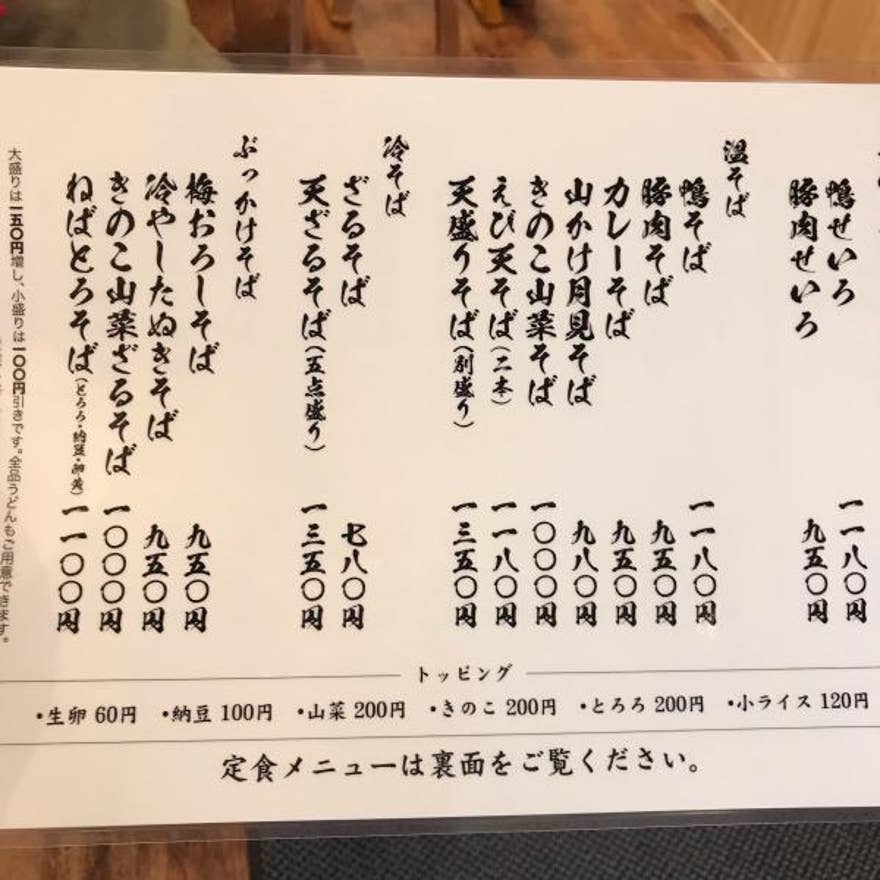 鴨せいろ 一一八〇円
豚肉せいろ 九五〇円
温そば
鴨そば 一一八〇円
豚肉そば 九五〇円
カレーそば 九五〇円
山かけ月見そば 九八〇円
きのこ山菜そば 一〇〇〇円
えび天そば(二本) 一一八〇円
天盛りそば(別盛り) 一三五〇円
冷そば
ざるそば 七八〇円
天ざるそば(五点盛り) 一三五〇円
ぶっかけそば
梅おろしそば 九五〇円
冷やしたぬきそば 九五〇円
きのこ山菜ざるそば 一〇〇〇円
ねばとろそば(とろろ・納豆・卵黄) 一一〇〇円
大盛りは一五〇円増し、小盛りは一〇〇円引きです。全品うどんもご用意できます。
トッピング
・生卵 60円 ・納豆 100円 ・山菜 200円 ・きのこ 200円 ・とろろ 200円 ・小ライス 120円
定食メニューは裏面をご覧ください。